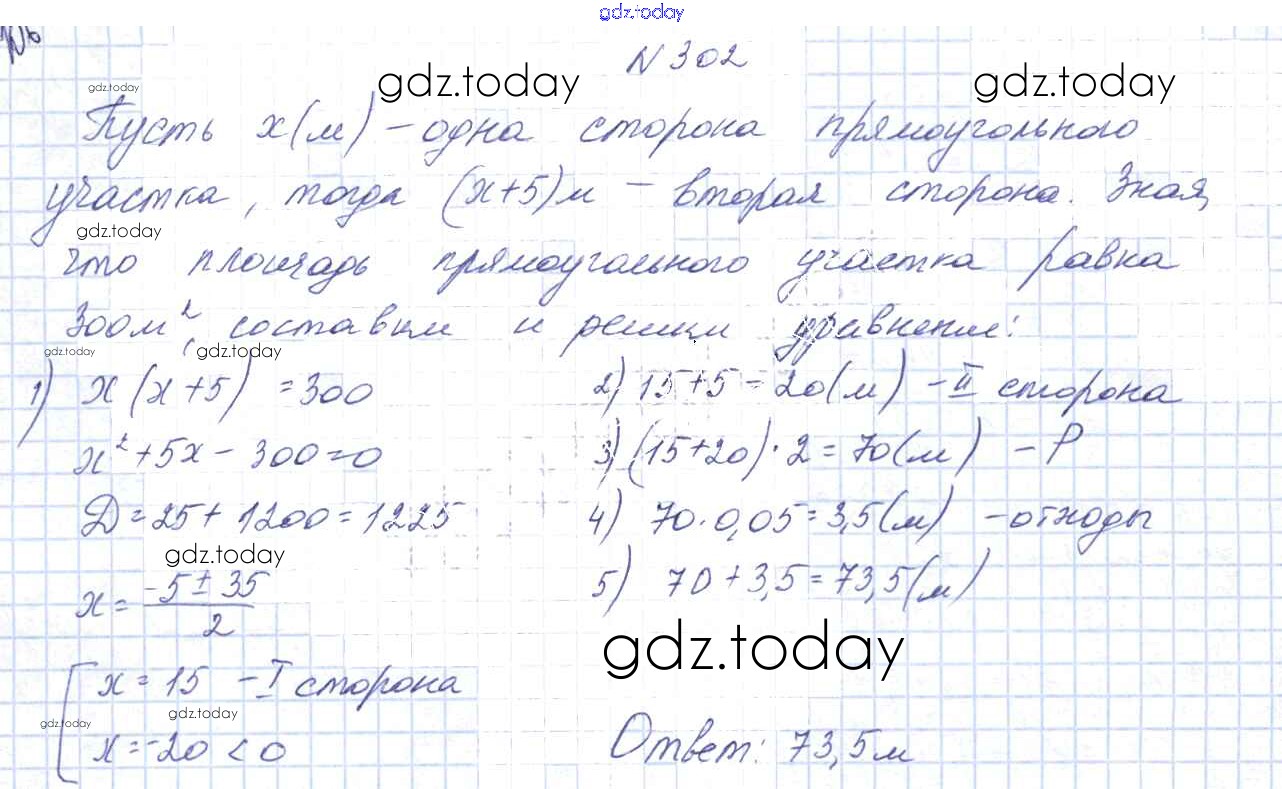 gdz.today
N 302
gdz.today gdz.today gdz.today
Пусть x(м) - одна сторона прямоугольного
участка, тогда (x+5)м - вторая сторона. Зная,
gdz.today
что площадь прямоугольного участка равна
300м², составим и решим уравнение:
gdz.today gdz.today
1) x(x+5) = 300
x² + 5x - 300 = 0
D = 25 + 1200 = 1225
gdz.today
x = (-5 ± 35)/2
[ x = 15 - I сторона
gdz.today gdz.today
x = -20 < 0
2) 15 + 5 = 20(м) - II сторона
3) (15+20)·2 = 70(м) - P
4) 70·0,05 = 3,5(м) - отходы
5) 70 + 3,5 = 73,5(м)
gdz.today
Ответ: 73,5м